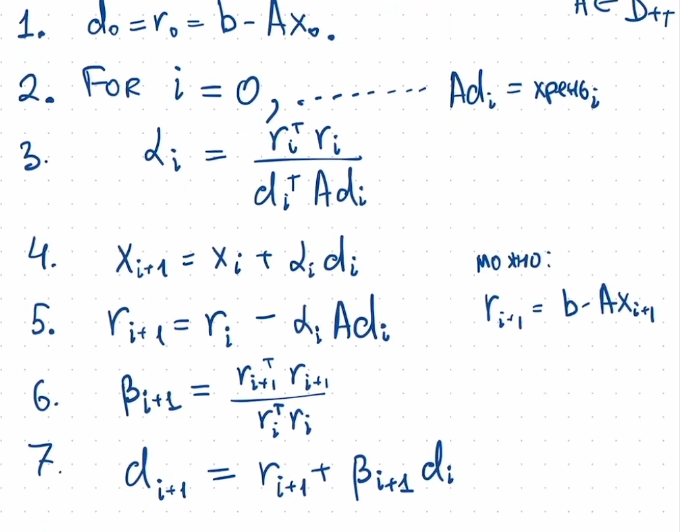 A ∈ D++
1. d₀ = r₀ = b - Ax₀.
2. FOR i = 0, ........ Adᵢ = хреньᵢ
3. αᵢ = rᵢᵀ rᵢ / dᵢᵀ Adᵢ
4. xᵢ₊₁ = xᵢ + αᵢ dᵢ
можно:
5. rᵢ₊₁ = rᵢ - αᵢ Adᵢ
rᵢ₊₁ = b - Axᵢ₊₁
6. βᵢ₊₁ = rᵢ₊₁ᵀ rᵢ₊₁ / rᵢᵀ rᵢ
7. dᵢ₊₁ = rᵢ₊₁ + βᵢ₊₁ dᵢ